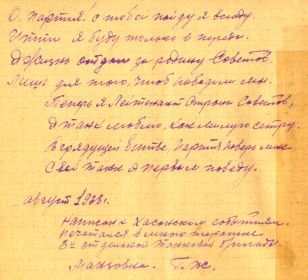 О, Партия! с тобой пойду я всюду
Идти я буду только в перед.
Жизнь отдам за родину Советов,
Лишь для того, чтоб победили мы.
Теперь я Лейтенант Страны Советов,
Я танк люблю, как милую сестру,
В грядущей битве Партия поверь мне
Свой танк я первым поведу.
август 1938г.
Написан к Хасанским событиям.
Печатался в много тиражке
2й отдельной Танковой бригады.